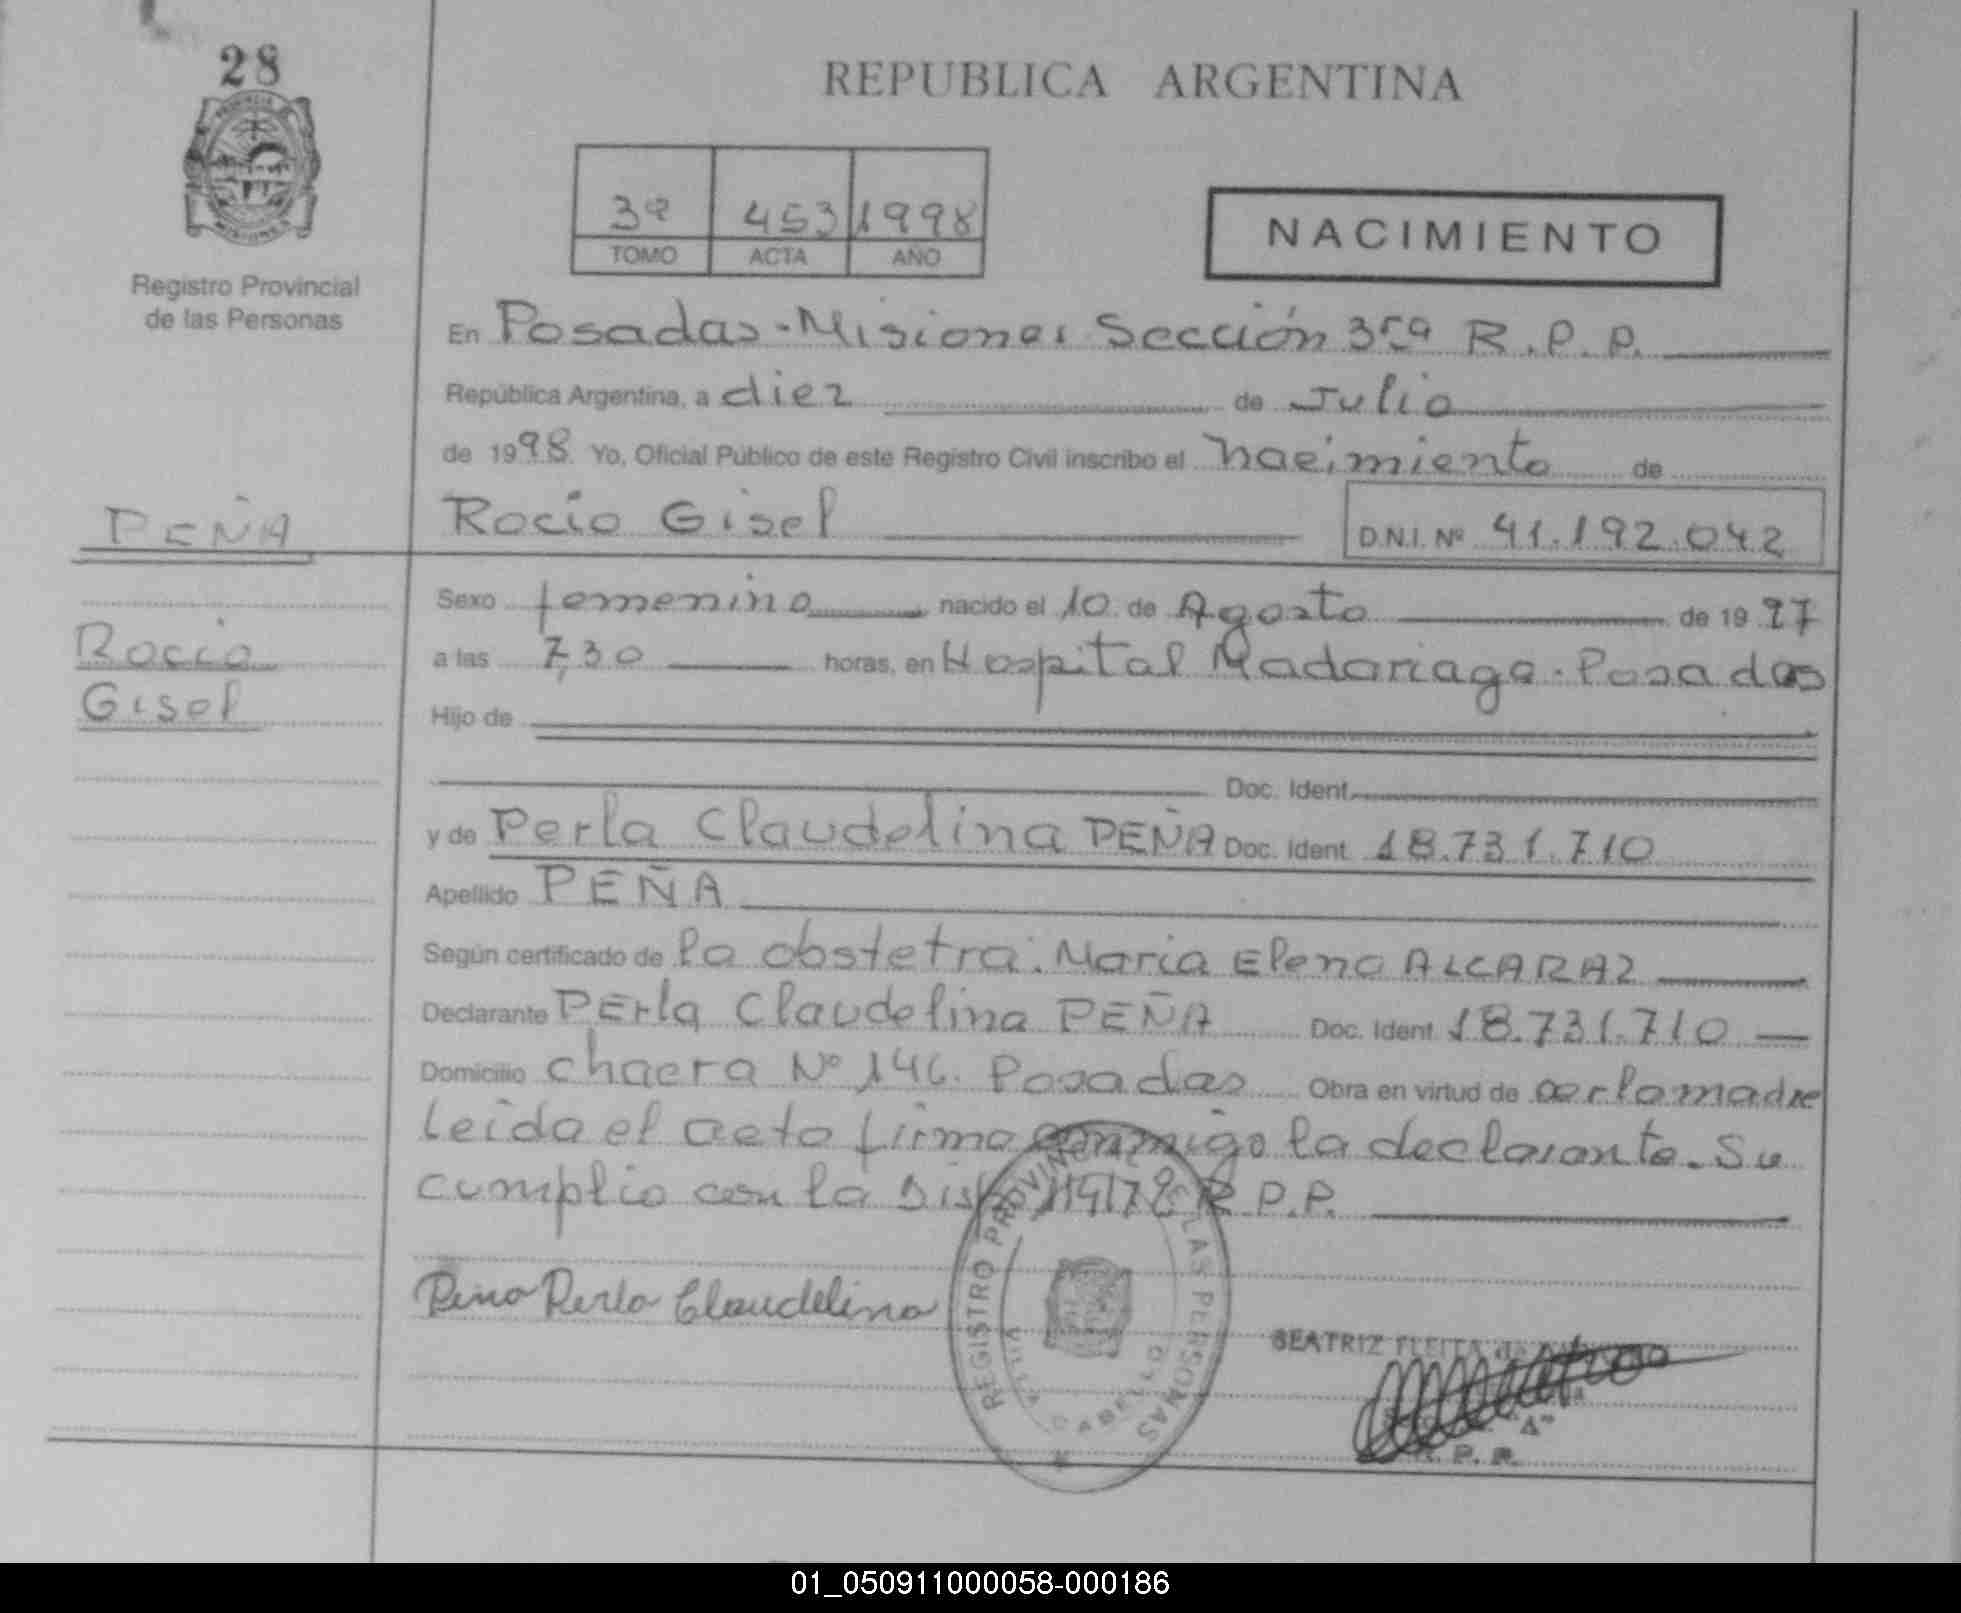 28
REPUBLICA ARGENTINA
3º 453 1998
TOMO ACTA AÑO
NACIMIENTO
Registro Provincial
de las Personas
En Posadas-Misiones Sección 3ra R.P.P.
República Argentina, a diez de Julio
de 1998. Yo, Oficial Público de este Registro Civil inscribo el nacimiento de
PEÑA
Rocío Gisel D.N.I. Nº 41.192.042
Sexo femenino nacido el 10 de Agosto de 1997
Rocío
a las 7,30 horas, en Hospital Madariaga-Posadas
Gisel
Hijo de
Doc. Ident.
y de Perla Claudelina PEÑA Doc. Ident. 18.731.710
Apellido PEÑA
Según certificado de la obstetra. María Elena ALCARAZ
Declarante PErla Claudelina PEÑA Doc. Ident. 18.731.710
Domicilio chacra Nº 146. Posadas Obra en virtud de ser la madre
Leída el acta firma conmigo la declarante. Se
cumplio con la Disp. R.P.P.
Peña Perla Claudelina
REGISTRO PROVINCIAL DE LAS PERSONAS
VILLA CABELLO
BEATRIZ FLEITA de
"A"
R. P. P.
01_050911000058-000186